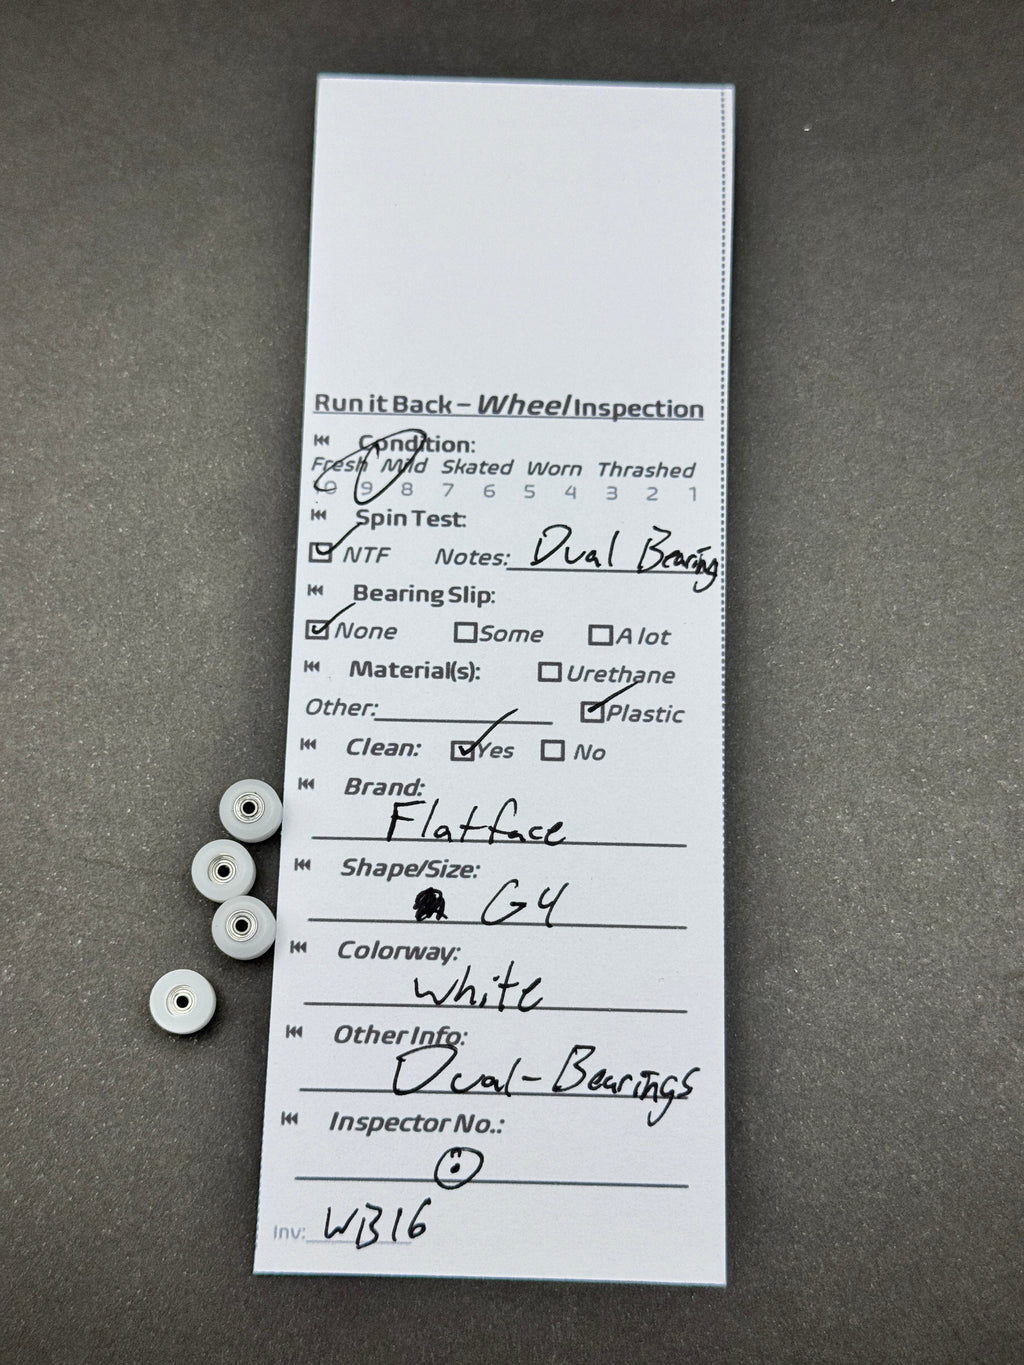 Run it Back – Wheel Inspection
Condition:
Fresh Mild Skated Worn Thrashed
10 9 8 7 6 5 4 3 2 1
Spin Test:
NTF Notes: Dual Bearing
Bearing Slip:
None Some A lot
Material(s): Urethane
Other: Plastic
Clean: Yes No
Brand:
Flatface
Shape/Size:
G4
Colorway:
White
Other Info:
Dual-Bearings
Inspector No.:
Inv: WB16